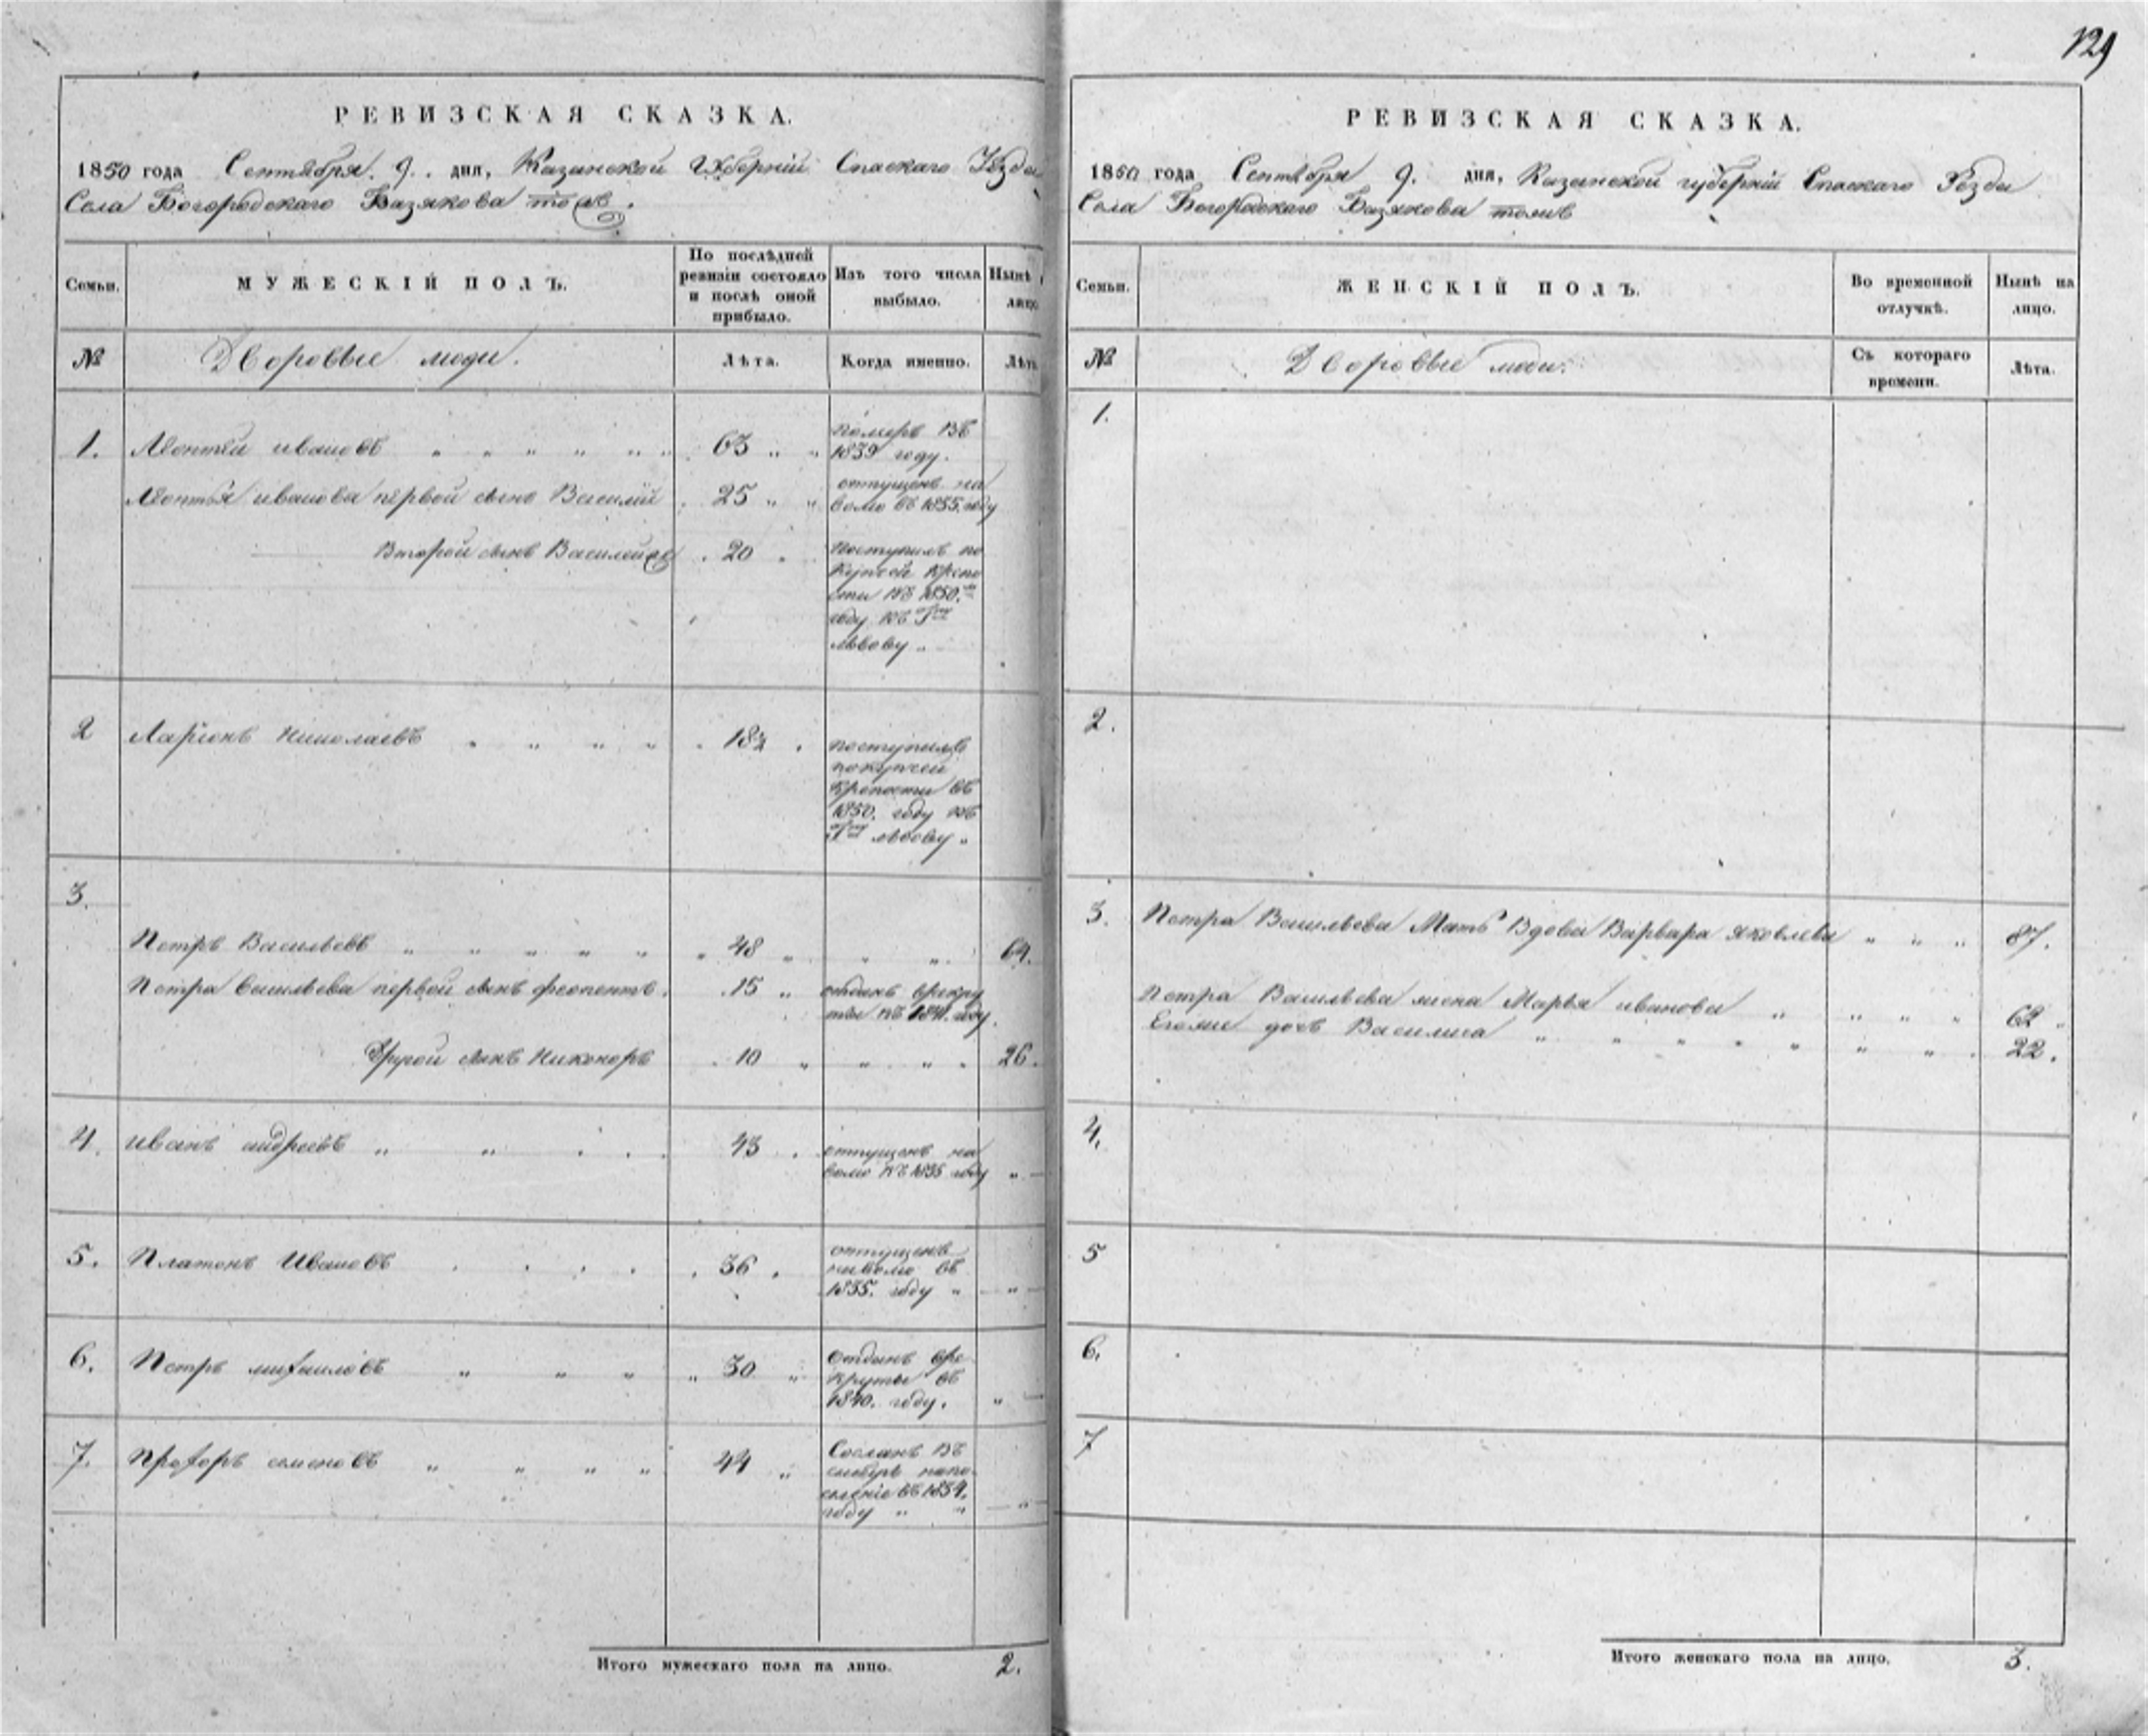 129
РЕВИЗСКАЯ СКАЗКА.
1850 года Сентября 9. дня, Казанской Губернiи Спаскаго Уѣзда
Села Богородскаго Базякова тожъ.
Семьи.
МУЖЕСКIЙ ПОЛЪ.
По послѣдней
ревизiи состояло
и послѣ оной
прибыло.
Изъ того числа
выбыло.
Нынѣ
лицо
№
Дворовые люди.
Лѣта.
Когда именно.
Лѣта
1. Леонтей ивановъ 63 померъ въ
1839 году.
Леонтья иванова первой сынъ Василiй 25 отпущенъ на
волю въ 1835. году
Второй сынъ Василей 20 Поступилъ по
Купчей Крепо
сти въ 1850.м
году къ Гну
Львову
2 Ларiонъ Николаевъ 18½ поступилъ
покупчей
Крепости въ
1850. году къ
Гну Львову
3.
Петръ Васильевъ 48 64.
Петра Васильева первой сынъ феопентъ. 15 отданъ врекру
ты въ 1841. году.
Другой сынъ Никоноръ 10 26.
4. иванъ андреевъ 43 отпущенъ на
волю въ 1835 году
5. Платонъ Ивановъ 36 отпущенъ
наволю въ
1835. году
6. Петръ михаиловъ 30 Отданъ вре
круты въ
1840. году.
7. Прохоръ семеновъ 44 Сосланъ въ
сибирь напо
селенiе въ 1834.
году
Итого мужескаго пола на лицо. 2.
РЕВИЗСКАЯ СКАЗКА.
1850 года Сентября 9. дня, Казанской губернiи Спаскаго Уезда
Села Богородскаго Базякова тожъ
Семьи.
ЖЕНСКIЙ ПОЛЪ.
Во временной
отлучкѣ.
Нынѣ на
лицо.
№
Дворовые люди.
Съ котораго
времени.
Лѣта.
1.
2.
3. Петра Васильева Мать Вдова Варвара яковлева 87.
Петра Васильева жена Марья иванова 62
Егоже дочь Василиса 22.
4.
5
6.
7
Итого женскаго пола на лицо. 3.